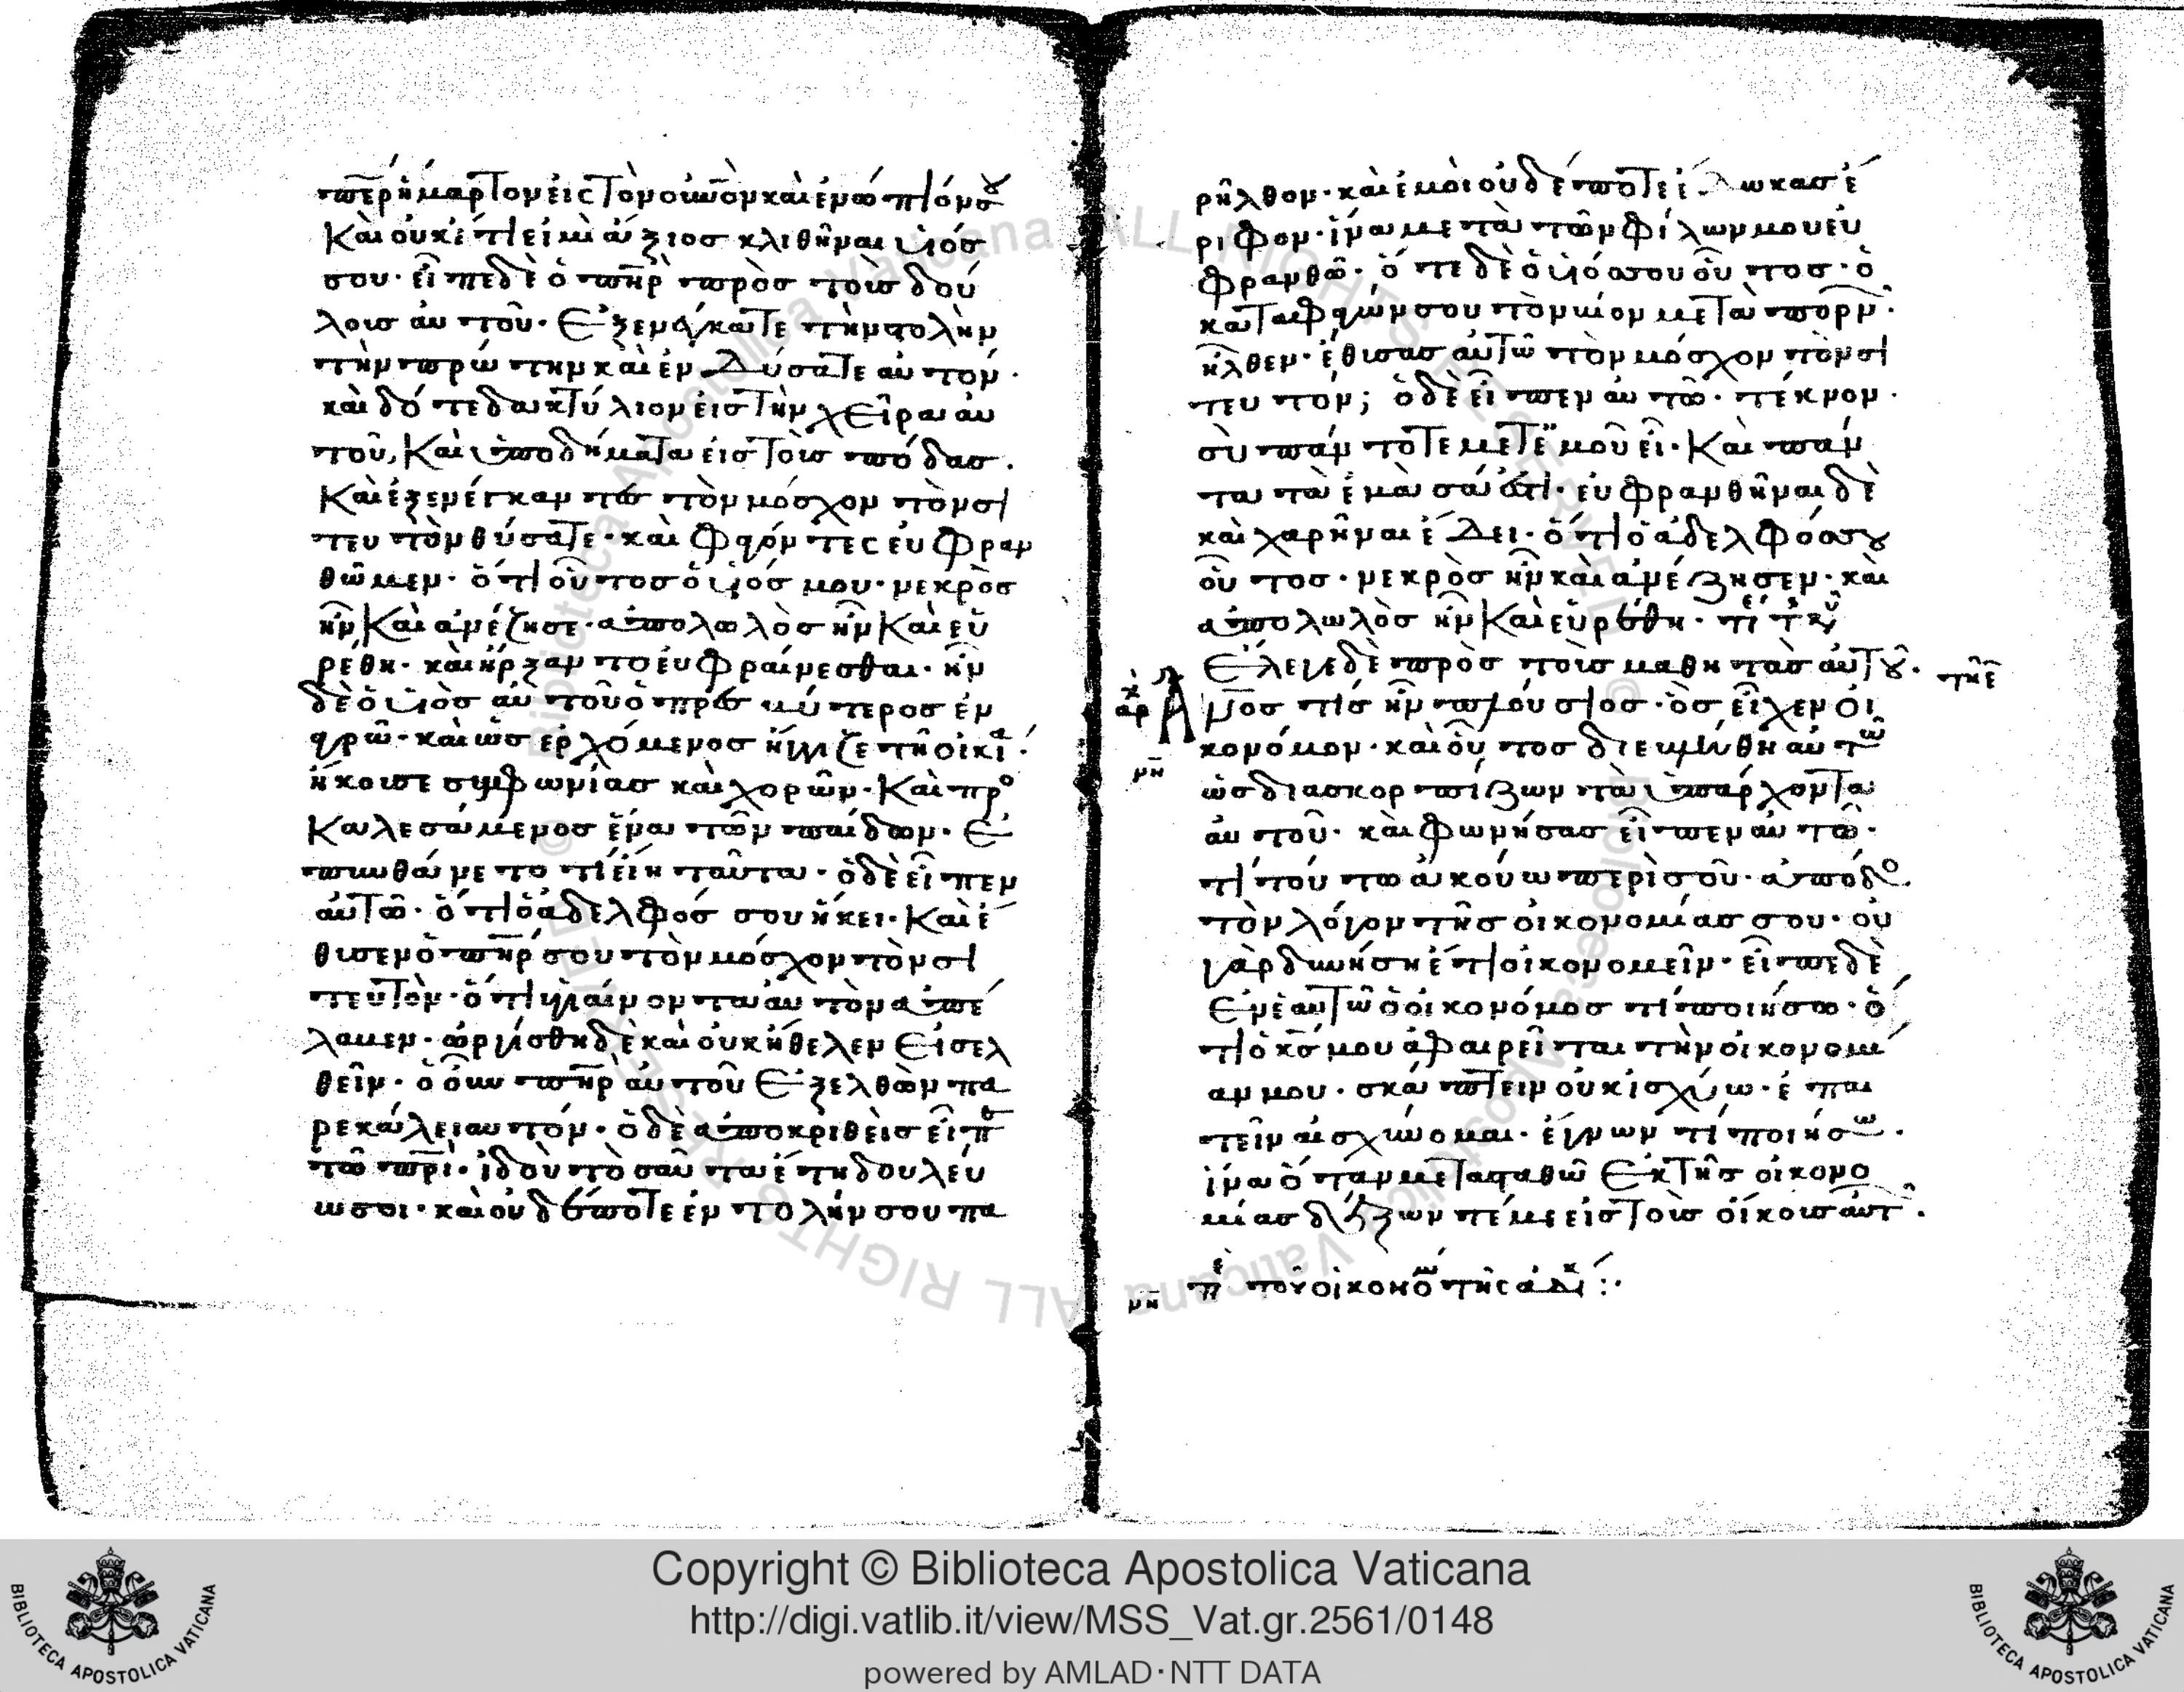 περ ἥμαρτον εἰς τὸν οὐνὸν καὶ ἐνώπιόν σου
Καὶ οὐκέτι εἰμὶ ἄξιος κλιθῆναι υἱός
σου· εἶπε δὲ ὁ πηρ πρὸς τοὺς δού
λους αὐτοῦ· Ἐξενέγκατε τὴν στολὴν
τὴν πρώτην καὶ ἐνδύσατε αὐτόν·
καὶ δότε δακτύλιον εἰς τὴν χεῖρα αὐ
τοῦ, Καὶ ὑποδήματα εἰς τοὺς πόδας·
Καὶ ἐξενέγκαντες τὸν μόσχον τὸν σι
τευτὸν θύσατε· καὶ φαγόντες εὐφραν
θῶμεν· ὅτι οὗτος ὁ υἱός μου· νεκρὸς
ἦν Καὶ ἀνέζησε· ἀπολωλὸς ἦν Καὶ εὑ
ρέθη· καὶ ἤρξαντο εὐφραίνεσθαι· ἦν
δὲ ὁ υἱὸς αὐτοῦ ὁ πρεσβύτερος ἐν
ἀγρῶ· καὶ ὡς ἐρχόμενος ἤγγιζε τῆ οἰκί·
ἤκουσε συμφωνίας καὶ χορῶν· Καὶ προ
Καλεσάμενος ἕνα τῶν παίδων· Ἐ
πυνθάνετο τί εἴη ταῦτα· ὁ δὲ εἶπεν
αὐτῶ· ὅτι ὁ ἀδελφός σου ἥκει· Καὶ ἔ
θυσεν ὁ πηρ σου τὸν μόσχον τὸν σι
τευτόν· ὅτι ὑγιαίνοντα αὐτὸν ἀπέ
λαβεν· ὠργίσθη δὲ καὶ οὐκ ἤθελεν Εἰσελ
θεῖν· ὁ οὖν πηρ αὐτοῦ Ἐξελθὼν πα
ρεκάλει αὐτόν· ὁ δὲ ἀποκριθεὶς εἶπ
τῶ πρι· ἰδοὺ τοσαῦτα ἔτη δουλεύ
ω σοι· καὶ οὐδέποτε ἐντολήν σου πα
ρῆλθον· καὶ ἐμοὶ οὐδέποτε ἔδωκας ἔ
ριφον· ἵνα μετὰ τῶν φίλων μου εὐ
φρανθῶ· ὅτε δὲ ὁ υἱός σου οὗτος· ὁ
καταφαγών σου τὸν βίον μετὰ πορν·
ἦλθεν· ἔθυσας αὐτῶ τὸν μόσχον τὸν σι
τευτόν; ὁ δὲ εἶπεν αὐτῶ· τέκνον·
σὺ πάντοτε μετ' ἐμοῦ εἶ· Καὶ πάν
τα τὰ ἐμὰ σά ἐστι· εὐφρανθῆναι δὲ
καὶ χαρῆναι ἔδει· ὅτι ὁ ἀδελφός σου
οὗτος· νεκρὸς ἦν καὶ ἀνέζησεν· καὶ
ἀπολωλὸς ἦν Καὶ εὑρέθη·
Ἔλεγε δὲ πρὸς τοὺς μαθητὰς αὐτοῦ·
Ανος τὶς ἦν πλούσιος· ὃς εἶχεν οἰ
κονόμον· καὶ οὗτος διεβλήθη αὐτῶ
ὡς διασκορπίζων τὰ ὑπάρχοντα
αὐτοῦ· καὶ φωνήσας εἶπεν αὐτῶ·
τί τοῦτο ἀκούω περὶ σοῦ· ἀπόδο
τὸν λόγον τῆς οἰκονομίας σου· οὐ
γὰρ δυνήση ἔτι οἰκονομεῖν· εἶπε δὲ
Ἐν ἑαυτῶ ὁ οἰκονόμος τί ποιήσω· ὅ
τι ὁ κς μου ἀφαιρεῖται τὴν οἰκονομί
αν μου· σκάπτειν οὐκ ἰσχύω· ἐπαι
τεῖν αἰσχύνομαι· ἔγνων τί ποιήσω·
ἵνα ὅταν μετασταθῶ Ἐκ τῆς οἰκονο
μίας δέξωνταί με εἰς τοὺς οἴκους αὐτ·
μη πε τοῦ οἰκονό τῆς ἀδι